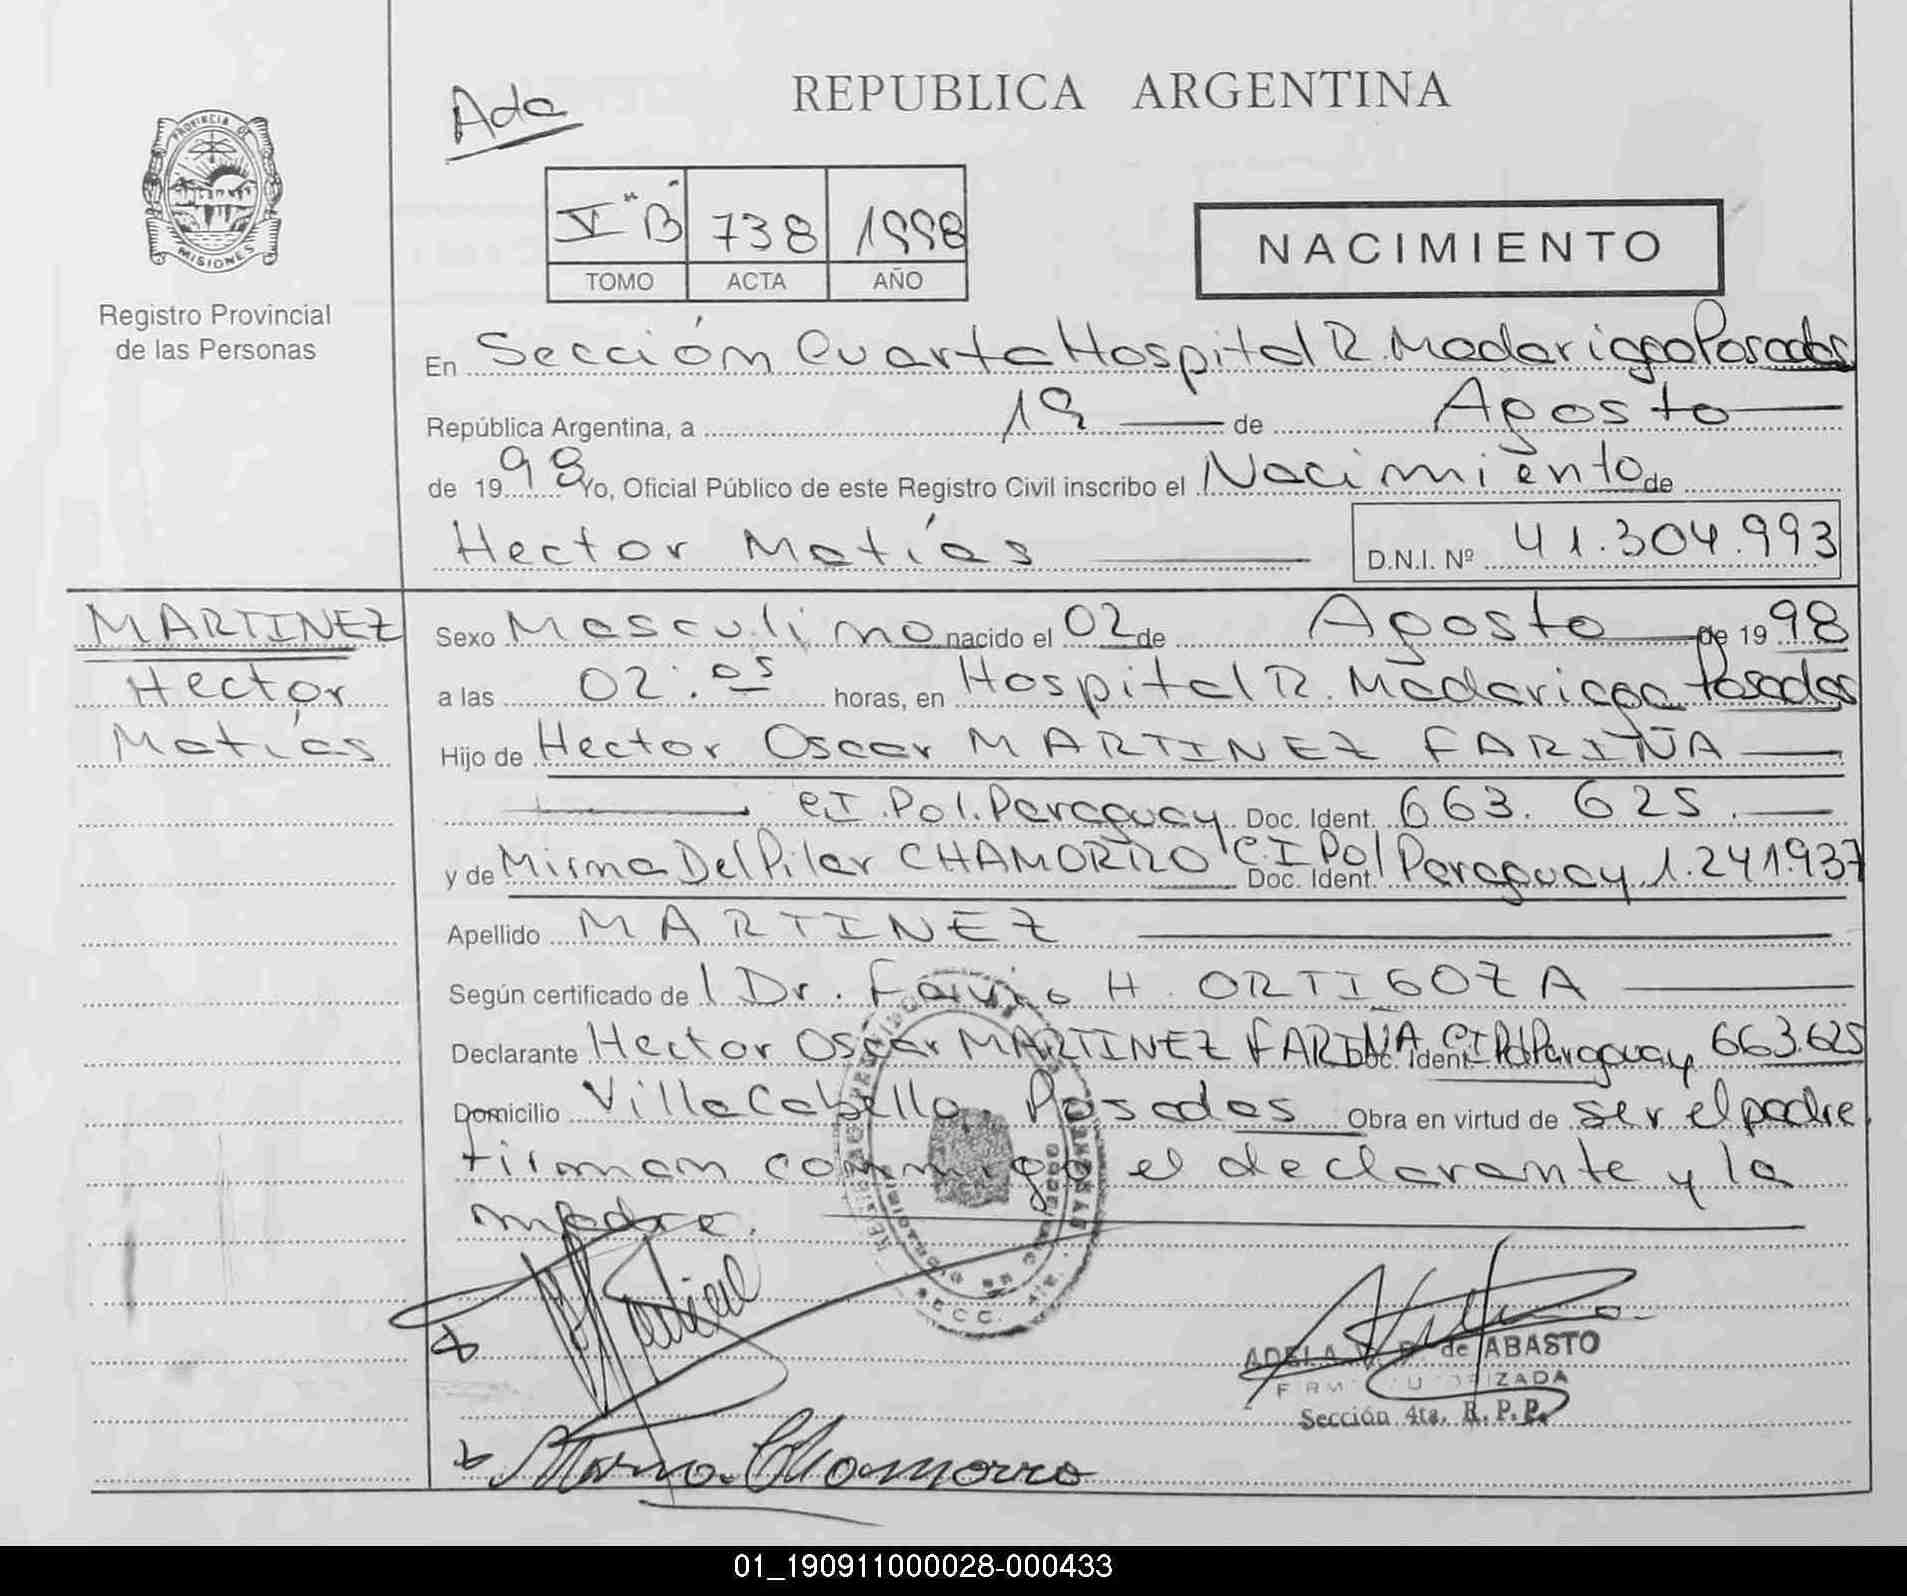 Ada
REPUBLICA ARGENTINA
PROVINCIA DE
MISIONES
Registro Provincial
de las Personas
V "B" 738 1998
TOMO ACTA AÑO
NACIMIENTO
En Sección Cuarta Hospital R. Madariaga Posadas
República Argentina, a 19 de Agosto
de 1998 Yo, Oficial Público de este Registro Civil inscribo el Nacimiento de
Hector Matías D.N.I. Nº 41.304.993
MARTINEZ
Hector
Matías
Sexo Masculino nacido el 02 de Agosto de 1998
a las 02:05 horas, en Hospital R. Madariaga Posadas
Hijo de Hector Oscar MARTINEZ FARIÑA
C.I. Pol. Paraguay Doc. Ident. 663.625
y de Mirna Del Pilar CHAMORRO C.I Pol Doc. Ident. Paraguay 1.241.937
Apellido MARTINEZ
Según certificado del Dr. H. ORTIGOZA
Declarante Hector Oscar MARTINEZ FARIÑA Doc. Ident. C.I Pol Paraguay 663.625
Domicilio Villa Cabello. Posadas Obra en virtud de ser el padre,
firman conmigo el declarante y la
madre.
ADELA de ABASTO
FIRMA AUTORIZADA
Sección 4ta. R.P.P.
Mirna Chamorro
01_190911000028-000433